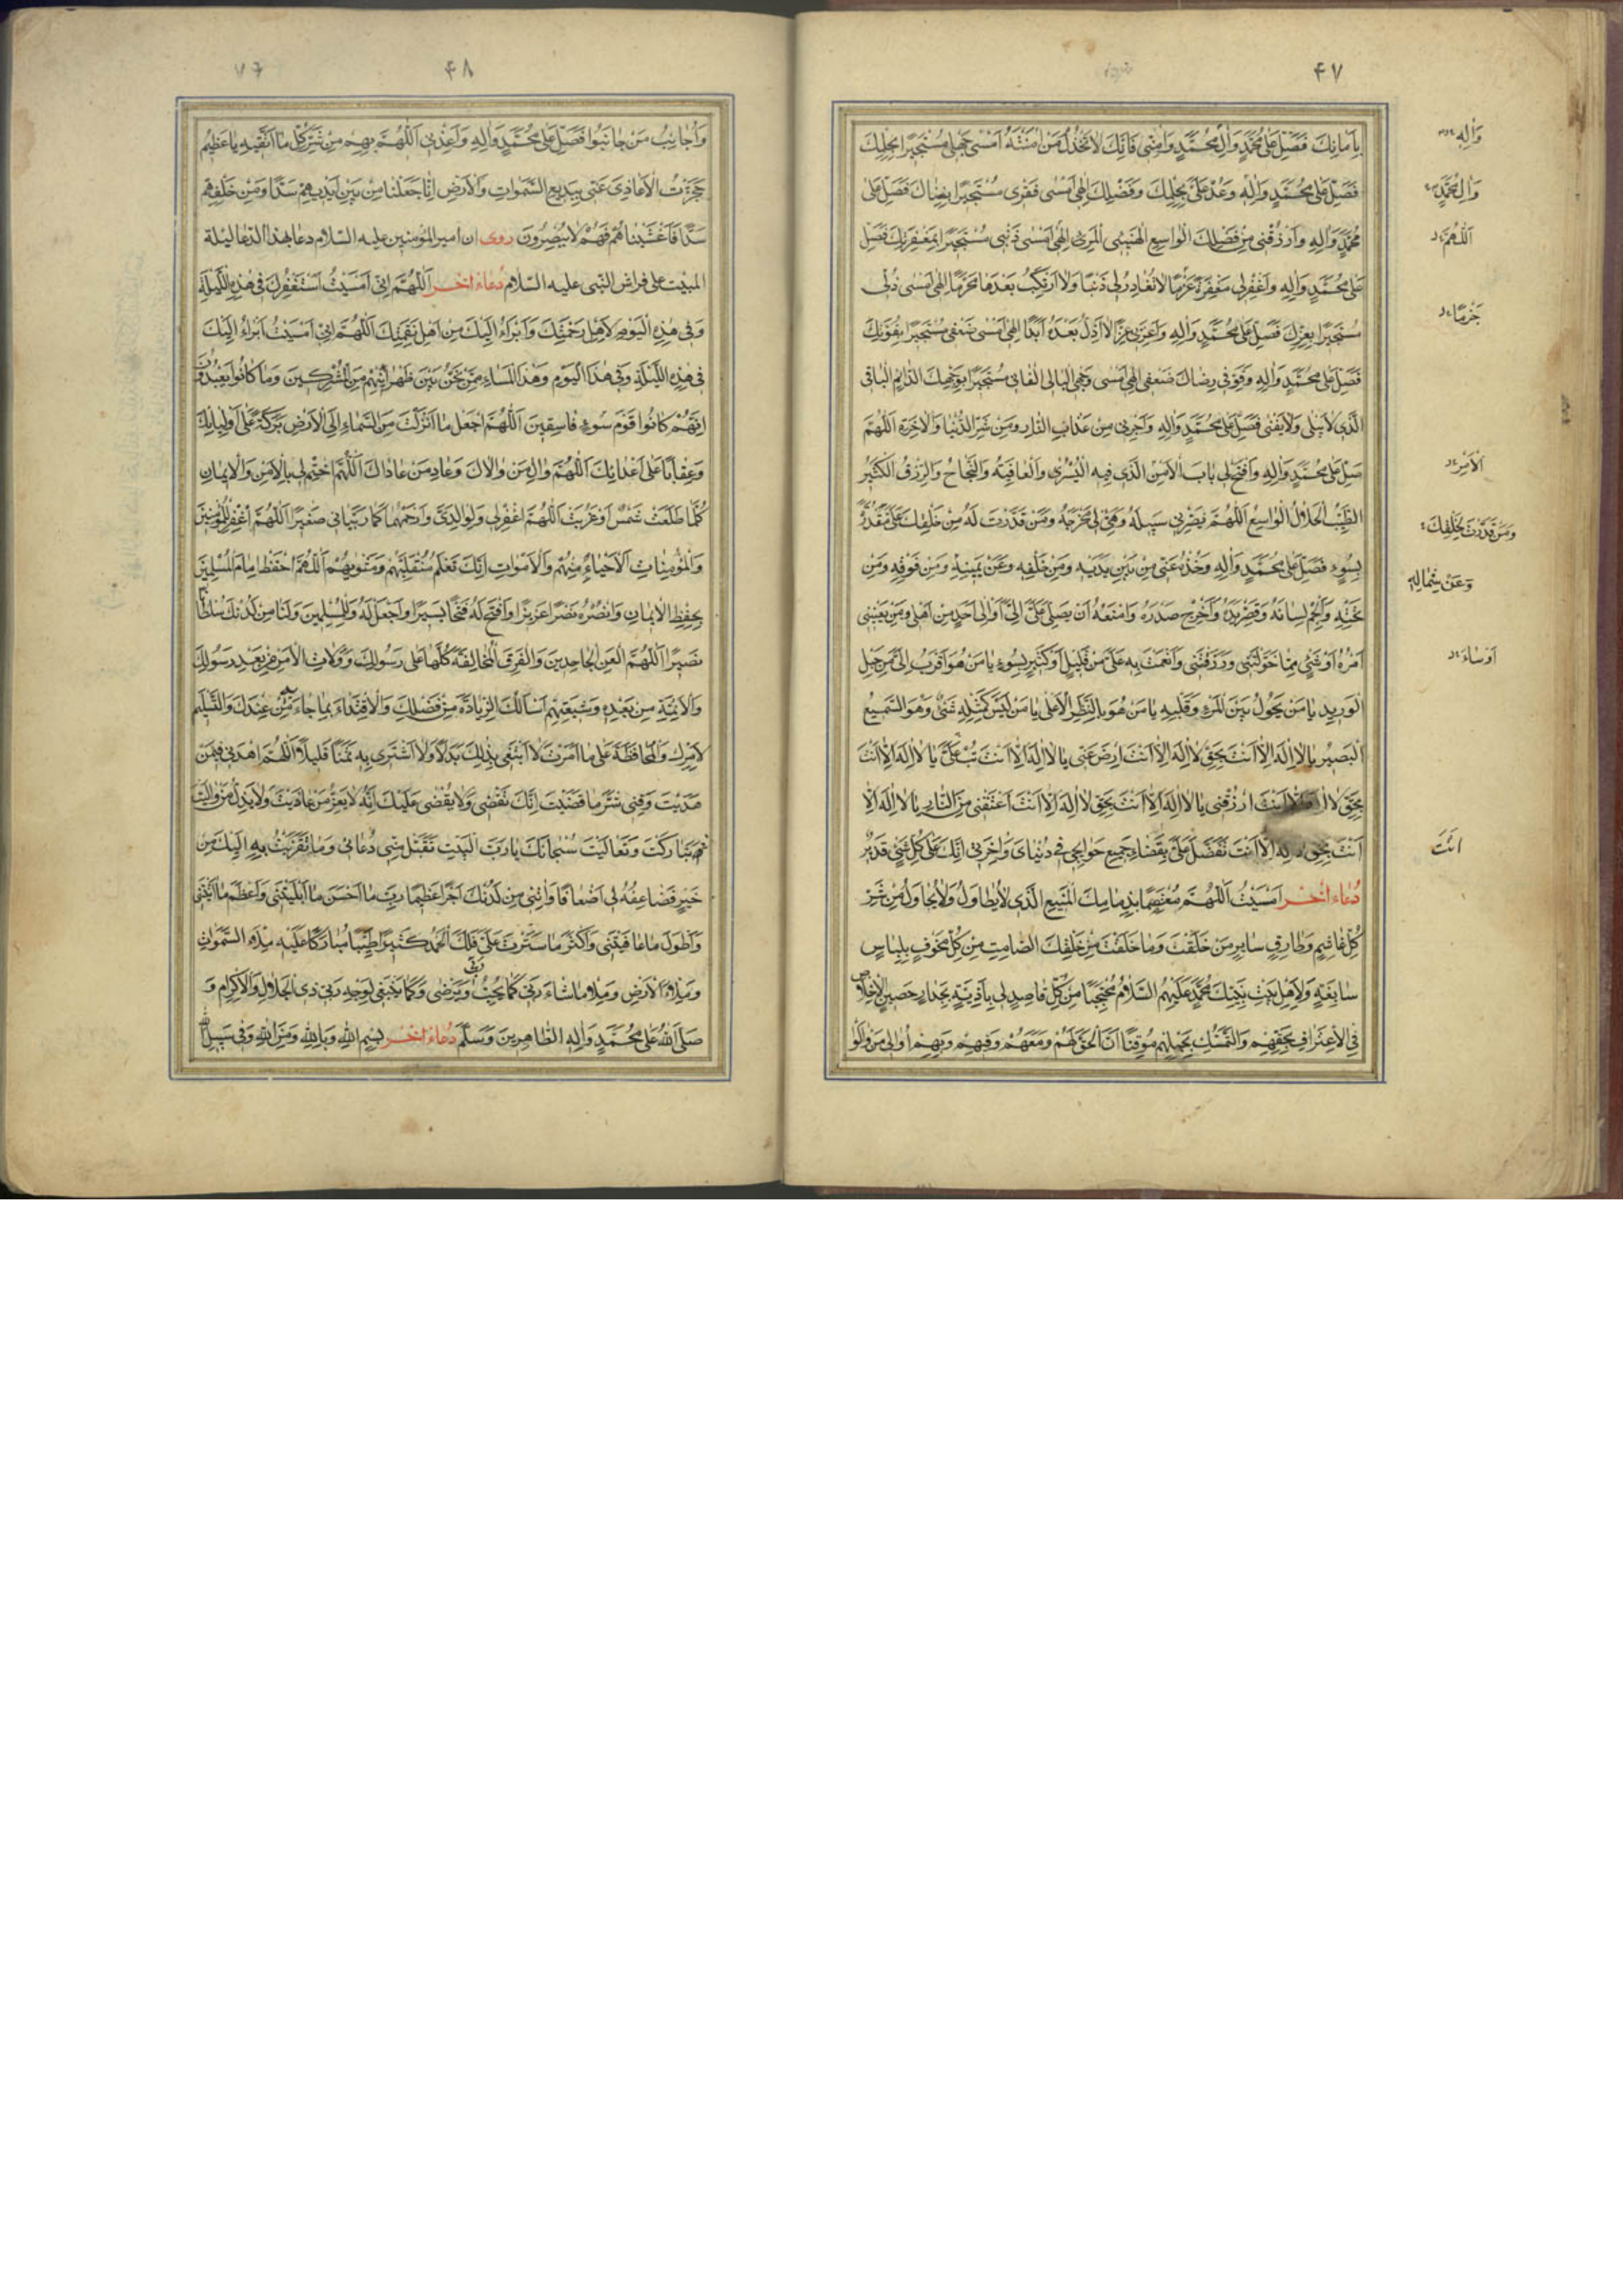 ۴۷
بِاَمانِكَ فَصَلِّ عَلى مُحَمَّدٍ وَالِ مُحَمَّدٍ وَامِنّى فَاِنَّكَ لا تَخْذُلُ مَنْ امَنْتَهُ اَمْسى جَهْلى مُسْتَجيرًا بِحِلْمِكَ
فَصَلِّ عَلى مُحَمَّدٍ وَالِهِ وَعُدْ عَلَىَّ بِحِلْمِكَ وَفَضْلِكَ اِلهى اَمْسى فَقْرى مُسْتَجيرًا بِغِناكَ فَصَلِّ عَلى
مُحَمَّدٍ وَالِهِ وَارْزُقْنى مِنْ فَضْلِكَ الْواسِعِ الْهَنيئِ الْمَرئِ اِلهى اَمْسى ذَنْبى مُسْتَجيرًا بِمَغْفِرَتِكَ فَصَلِّ
عَلى مُحَمَّدٍ وَالِهِ وَاغْفِرْ لى مَغْفِرَةً عَزْمًا لا تُغادِرُ لى ذَنْبًا وَلا اَرْتَكِبُ بَعْدَها مُحَرَّمًا اِلهى اَمْسى ذُلّى
مُسْتَجيرًا بِعِزِّكَ فَصَلِّ عَلى مُحَمَّدٍ وَالِهِ وَاَعِزَّنى عِزًّا لا اَذِلُّ بَعْدَهُ اَبَدًا اِلهى اَمْسى ضَعْفى مُسْتَجيرًا بِقُوَّتِكَ
فَصَلِّ عَلى مُحَمَّدٍ وَالِهِ وَقَوِّ فى رِضاكَ ضَعْفى اِلهى اَمْسى وَجْهِىَ الْبالى الْفانى مُسْتَجيرًا بِوَجْهِكَ الدّائِمِ الْباقى
الَّذى لا يَبْلى وَلا يَفْنى فَصَلِّ عَلى مُحَمَّدٍ وَالِهِ وَاَجِرْنى مِنْ عَذابِ النّارِ وَمِنْ شَرِّ الدُّنْيا وَالْاخِرَةِ اَللّهُمَّ
صَلِّ عَلى مُحَمَّدٍ وَالِهِ وَافْتَحْ لى بابَ الْاَمْنِ الَّذى فيهِ الْيُسْرى وَالْعافِيَةُ وَالنَّجاحُ وَالرِّزْقُ الْكَثيرُ
الطَّيِّبُ الْحَلالُ الْواسِعُ اَللّهُمَّ بَصِّرْنى سَبيلَهُ وَهَيِّئْ لى مَخْرَجَهُ وَمَنْ قَدَّرْتَ لَهُ مِنْ خَلْقِكَ عَلَىَّ مَقْدُرَةً
بِسُوءٍ فَصَلِّ عَلى مُحَمَّدٍ وَالِهِ وَخُذْهُ عَنّى مِنْ بَيْنِ يَدَيْهِ وَمِنْ خَلْفِهِ وَعَنْ يَمينِهِ وَمِنْ فَوْقِهِ وَمِنْ
تَحْتِهِ وَاَلْجِمْ لِسانَهُ وَقَصِّرْ يَدَهُ وَاَحْرِجْ صَدْرَهُ وَامْنَعْهُ اَنْ يَصِلَ اِلَىَّ اَوْ اِلى اَحَدٍ مِنْ اَهْلى وَمَنْ يَعْنينى
اَمْرُهُ اَوْ شَىْءٍ مِمّا خَوَّلْتَنى وَرَزَقْتَنى وَاَنْعَمْتَ بِهِ عَلَىَّ مِنْ قَليلٍ اَوْ كَثيرٍ بِسُوءٍ يا مَنْ هُوَ اَقْرَبُ اِلَىَّ مِنْ حَبْلِ
الْوَريدِ يا مَنْ يَحُولُ بَيْنَ الْمَرْءِ وَقَلْبِهِ يا مَنْ هُوَ بِالْمَنْظَرِ الْاَعْلى يا مَنْ لَيْسَ كَمِثْلِهِ شَىْءٌ وَهُوَ السَّميعُ
الْبَصيرُ يا لا اِلهَ اِلّا اَنْتَ بِحَقِّ لا اِلهَ اِلّا اَنْتَ اِرْضَ عَنّى يا لا اِلهَ اِلّا اَنْتَ تُبْ عَلَىَّ يا لا اِلهَ اِلّا اَنْتَ
بِحَقِّ لا اِلهَ اِلّا اَنْتَ ارْزُقْنى يا لا اِلهَ اِلّا اَنْتَ بِحَقِّ لا اِلهَ اِلّا اَنْتَ اَعْتِقْنى مِنَ النّارِ يا لا اِلهَ اِلّا
اَنْتَ بِحَقِّ لا اِلهَ اِلّا اَنْتَ تَفَضَّلْ عَلَىَّ بِقَضاءِ جَميعِ حَوائِجى فى دُنْياىَ وَاخِرَتى اِنَّكَ عَلى كُلِّ شَىْءٍ قَديرٌ
دُعاء اخر اَمْسَيْتُ اَللّهُمَّ مُعْتَصِمًا بِذِمامِكَ الْمَنيعِ الَّذى لا يُطاوَلُ وَلا يُحاوَلُ مِنْ شَرِّ
كُلِّ غاشِمٍ وَطارِقٍ مِنْ سايِرِ مَنْ خَلَقْتَ وَما خَلَقْتَ مِنْ خَلْقِكَ الصّامِتِ مِنْ كُلِّ مَخُوفٍ بِلِباسٍ
سابِغَةٍ وَلاءِ اَهْلِ بَيْتِ نَبِيِّكَ مُحَمَّدٍ عَلَيْهِمُ السَّلامُ مُحْتَجِبًا مِنْ كُلِّ قاصِدٍ لى بِاَذِيَّةٍ بِجِدارٍ حَصينِ الْاِخْلاصِ
فِى الْاِعْتِرافِ بِحَقِّهِمْ وَالتَّمَسُّكِ بِحَبْلِهِمْ مُوقِنًا اَنَّ الْحَقَّ لَهُمْ وَمَعَهُمْ وَفيهِمْ وَبِهِمْ اُوالى مَنْ والَوْا
وَالِهِ
وَالِ مُحَمَّدٍ
اَللّهُمَّ
الْاَمْرِ
وَمَنْ قَدَّرْتَ بِخَلْقِكَ
وَعَنْ شِمالِهِ
اَنْتَ
۴۸
۷۶
وَاُجانِبُ مَنْ جانَبُوا فَصَلِّ عَلى مُحَمَّدٍ وَالِهِ وَاَعِذْنى اَللّهُمَّ بِهِمْ مِنْ شَرِّ كُلِّ ما اَتَّقيهِ يا عَظيمُ
حَجَزْتُ الْاَعادِىَ عَنّى بِبَديعِ السَّمواتِ وَالْاَرْضِ اِنّا جَعَلْنا مِنْ بَيْنِ اَيْديهِمْ سَدًّا وَمِنْ خَلْفِهِمْ
سَدًّا فَاَغْشَيْناهُمْ فَهُمْ لا يُبْصِرُونَ روى ان امير المؤمنين عليه السّلام دعا بهذا الدّعا ليلة
المبيت على فراش النّبى عليه السّلام دُعاء اخر اَللّهُمَّ اِنّى اَمْسَيْتُ اَسْتَغْفِرُكَ فى هذِهِ اللَّيْلَةِ
وَفى هذِهِ الْيَوْمِ لِاَهْلِ رَحْمَتِكَ وَاَبْرَاُ اِلَيْكَ مِنْ اَهْلِ نَقِمَتِكَ اَللّهُمَّ اِنّى اَمْسَيْتُ اَبْرَاُ اِلَيْكَ
فى هذِهِ اللَّيْلَةِ وَفى هذَا الْيَوْمِ وَهذَا الْمَساءِ مِمَّنْ نَحْنُ بَيْنَ ظَهْرانَيْهِمْ مِنَ الْمُشْرِكينَ وَما كانُوا يَعْبُدُونَ
اِنَّهُمْ كانُوا قَوْمَ سُوءٍ فاسِقينَ اَللّهُمَّ اجْعَلْ ما اَنْزَلْتَ مِنَ السَّماءِ اِلَى الْاَرْضِ بَرَكَةً عَلى اَوْلِيائِكَ
وَعِقابًا عَلى اَعْدائِكَ اَللّهُمَّ والِ مَنْ والاكَ وَعادِ مَنْ عاداكَ اَللّهُمَّ اخْتِمْ لى بِالْاَمْنِ وَالْايمانِ
كُلَّما طَلَعَتْ شَمْسٌ اَوْ غَرَبَتْ اَللّهُمَّ اغْفِرْ لى وَلِوالِدَىَّ وَارْحَمْهُما كَما رَبَّيانى صَغيرًا اَللّهُمَّ اغْفِرْ لِلْمُؤْمِنينَ
وَالْمُؤْمِناتِ الْاَحْياءِ مِنْهُمْ وَالْاَمْواتِ اِنَّكَ تَعْلَمُ مُنْقَلَبَهُمْ وَمَثْويهُمْ اَللّهُمَّ احْفَظْ اِمامَ الْمُسْلِمينَ
بِحِفْظِ الْايمانِ وَانْصُرْهُ نَصْرًا عَزيزًا وَافْتَحْ لَهُ فَتْحًا يَسيرًا وَاجْعَلْ لَهُ وَلِلْمُسْلِمينَ وَلَنا مِنْ لَدُنْكَ سُلْطانًا
نَصيرًا اَللّهُمَّ الْعَنِ الْجاحِدينَ وَالْفِرَقَ الْمُخالِفَةَ كُلَّها عَلى رَسُولِكَ وَوُلاتِ الْاَمْرِ مِنْ بَعْدِ رَسُولِكَ
وَالْاَئِمَّةِ مِنْ بَعْدِهِ وَشيعَتِهِمْ اَسْاَلُكَ الزِّيادَةَ مِنْ فَضْلِكَ وَالْاِقْتِداءَ بِما جاءَ مِنْ عِنْدِكَ وَالتَّسْليمَ
لِاَمْرِكَ وَالْمُحافَظَةَ عَلى ما اَمَرْتَ لا اَبْتَغى بِذلِكَ بَدَلًا وَلا اَشْتَرى بِهِ ثَمَنًا قَليلًا اَللّهُمَّ اهْدِنى فيمَنْ
هَدَيْتَ وَقِنى شَرَّ ما قَضَيْتَ اِنَّكَ تَقْضى وَلا يُقْضى عَلَيْكَ اِنَّهُ لا يَعِزُّ مَنْ عادَيْتَ وَلا يَذِلُّ مَنْ والَيْتَ
تَبارَكْتَ وَتَعالَيْتَ سُبْحانَكَ يا رَبَّ الْبَيْتِ تَقَبَّلْ مِنّى دُعائى وَما تَقَرَّبْتُ بِهِ اِلَيْكَ مِنْ
خَيْرٍ فَضاعِفْهُ لى اَضْعافًا وَاتِنى مِنْ لَدُنْكَ اَجْرًا عَظيمًا رَبِّ ما اَحْسَنَ ما اَبْلَيْتَنى وَاَعْظَمَ ما اتَيْتَنى
وَاَطْوَلَ ما عافَيْتَنى وَاَكْثَرَ ما سَتَرْتَ عَلَىَّ فَلَكَ الْحَمْدُ كَثيرًا طَيِّبًا مُبارَكًا عَلَيْهِ مِلْاَ السَّمواتِ
وَمِلْاَ الْاَرْضِ وَمِلْاَ ما شاءَ رَبّى كَما يُحِبُّ رَبّى وَيَرْضى وَكَما يَنْبَغى لِوَجْهِ رَبّى ذِى الْجَلالِ وَالْاِكْرامِ وَ
صَلَّى اللهُ عَلى مُحَمَّدٍ وَالِهِ الطّاهِرينَ وَسَلَّمَ دُعاء اخر بِسْمِ اللهِ وَبِاللهِ وَمِنَ اللهِ وَفى سَبيلِ اللهِ